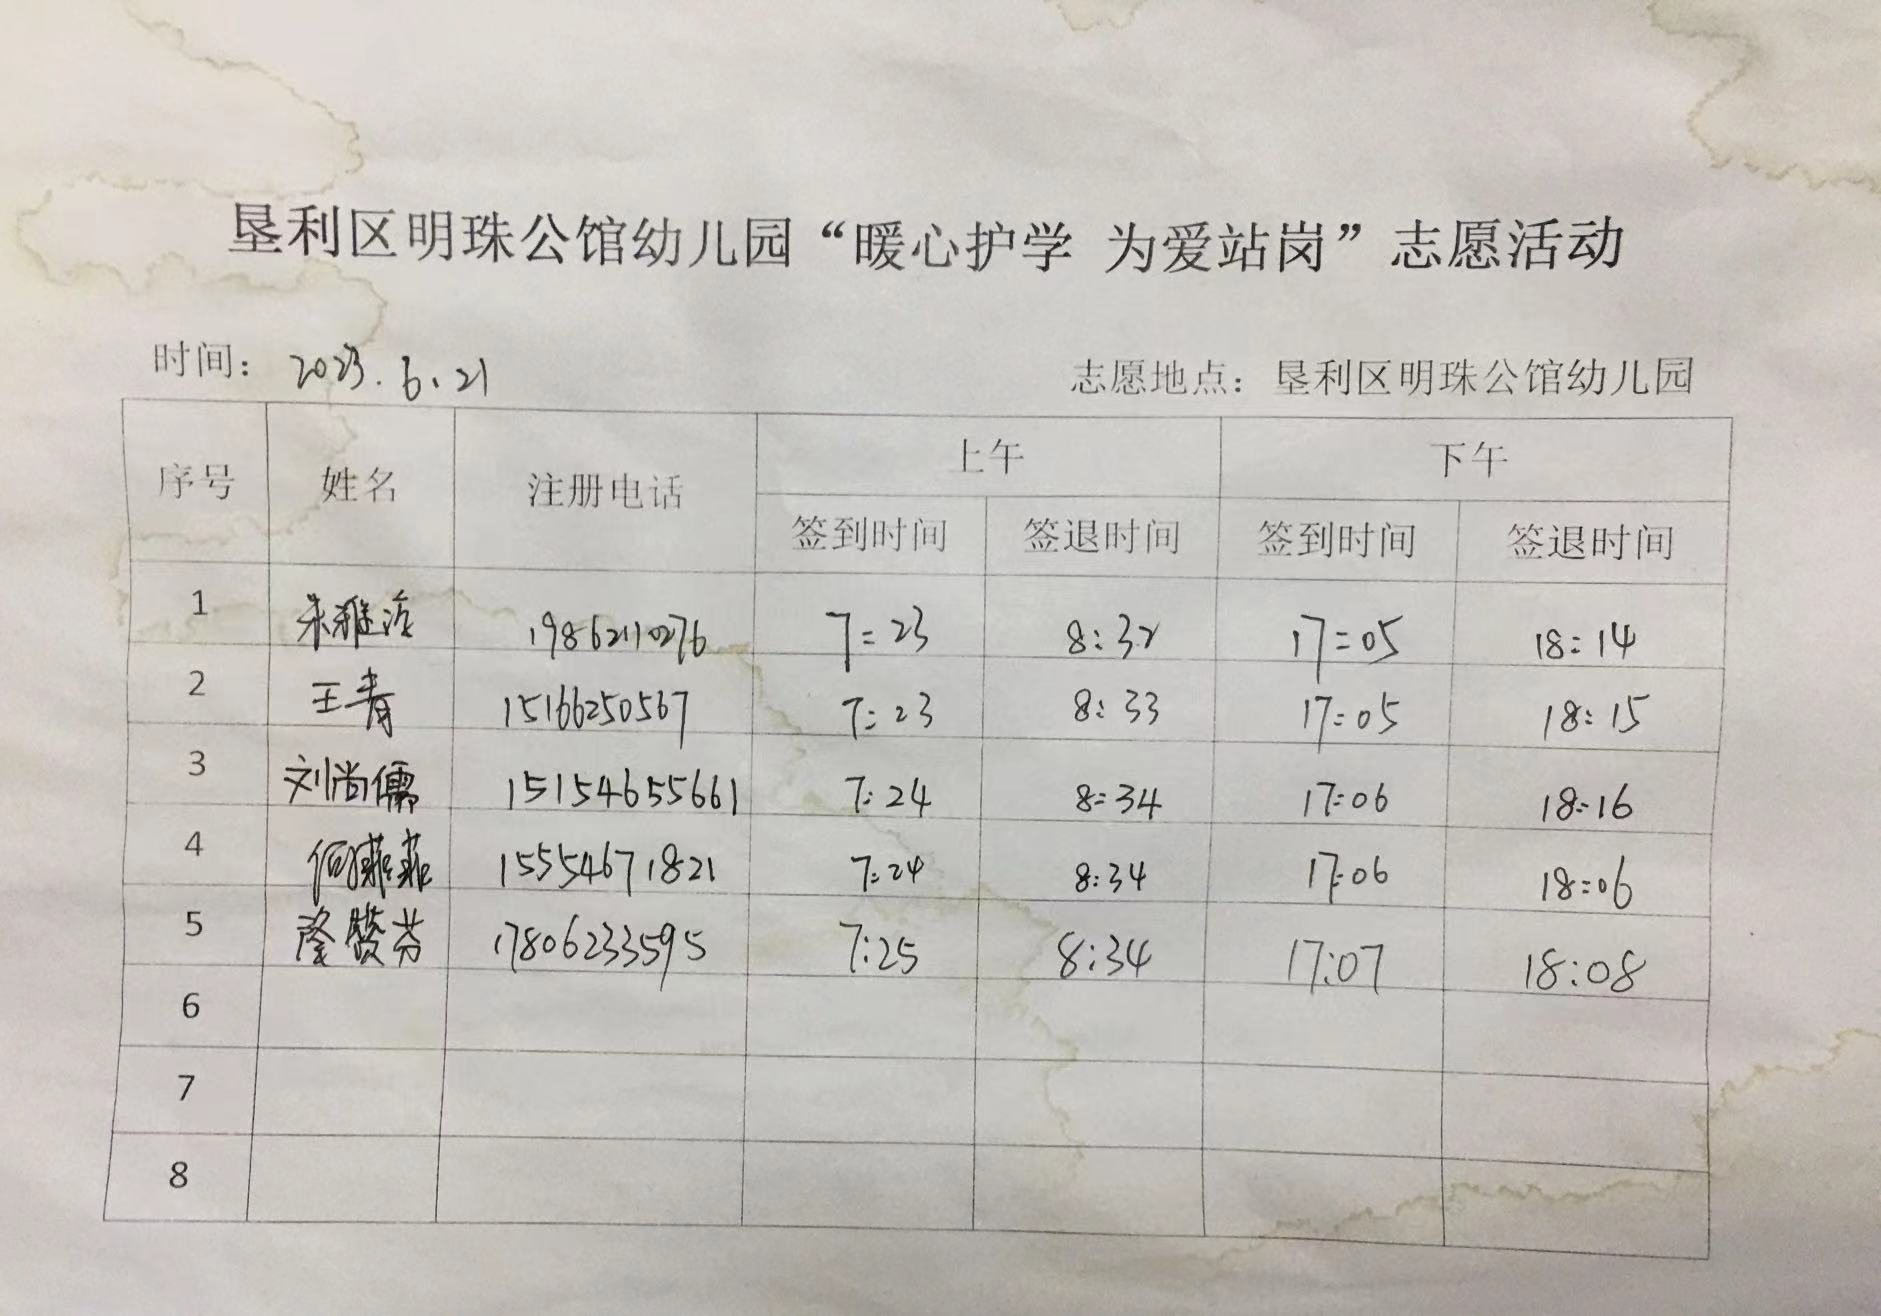 垦利区明珠公馆幼儿园“暖心护学 为爱站岗”志愿活动
时间： 2023.6.21 志愿地点：垦利区明珠公馆幼儿园
序号 姓名 注册电话 上午 下午
签到时间 签退时间 签到时间 签退时间
1 朱雅洁 19862110276 7:23 8:32 17:05 18:14
2 王青 15166250567 7:23 8:33 17:05 18:15
3 刘尚儒 15154655661 7:24 8:34 17:06 18:16
4 何菲菲 15554671821 7:24 8:34 17:06 18:06
5 隆赞芬 17806233595 7:25 8:34 17:07 18:08
6
7
8